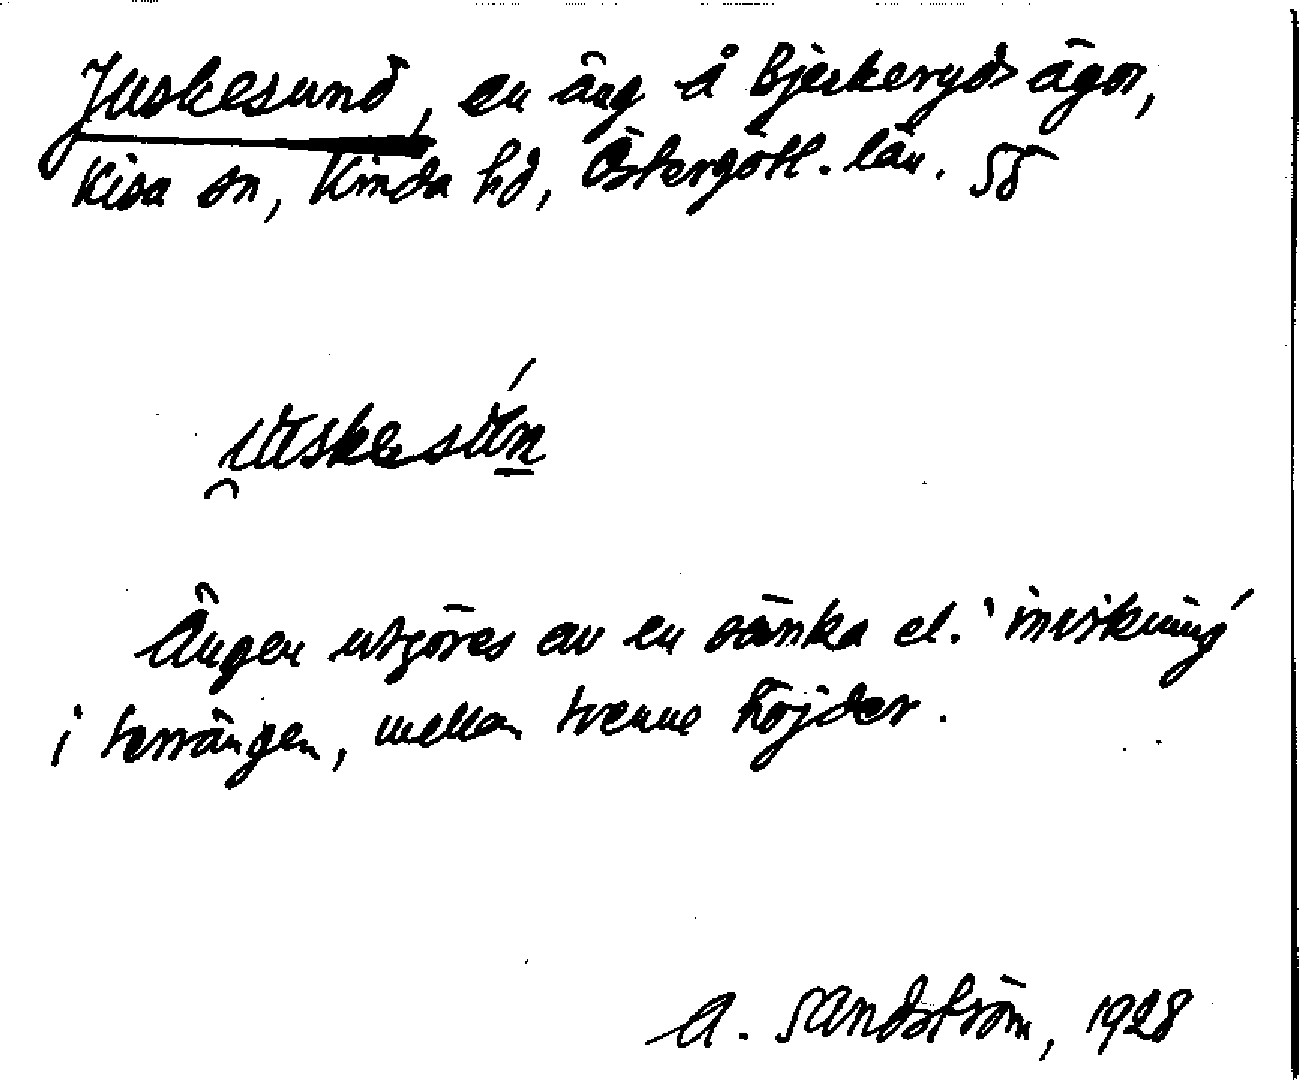 Juskesund, en äng å Bjerkeryds ägor,
Kisa sn, Kinda hd, Östergötl. län. 58
Ängen utgöres av en sänka el. 'invikning'
i terrängen, mellan trenne höjder.
A. Sandström, 1928